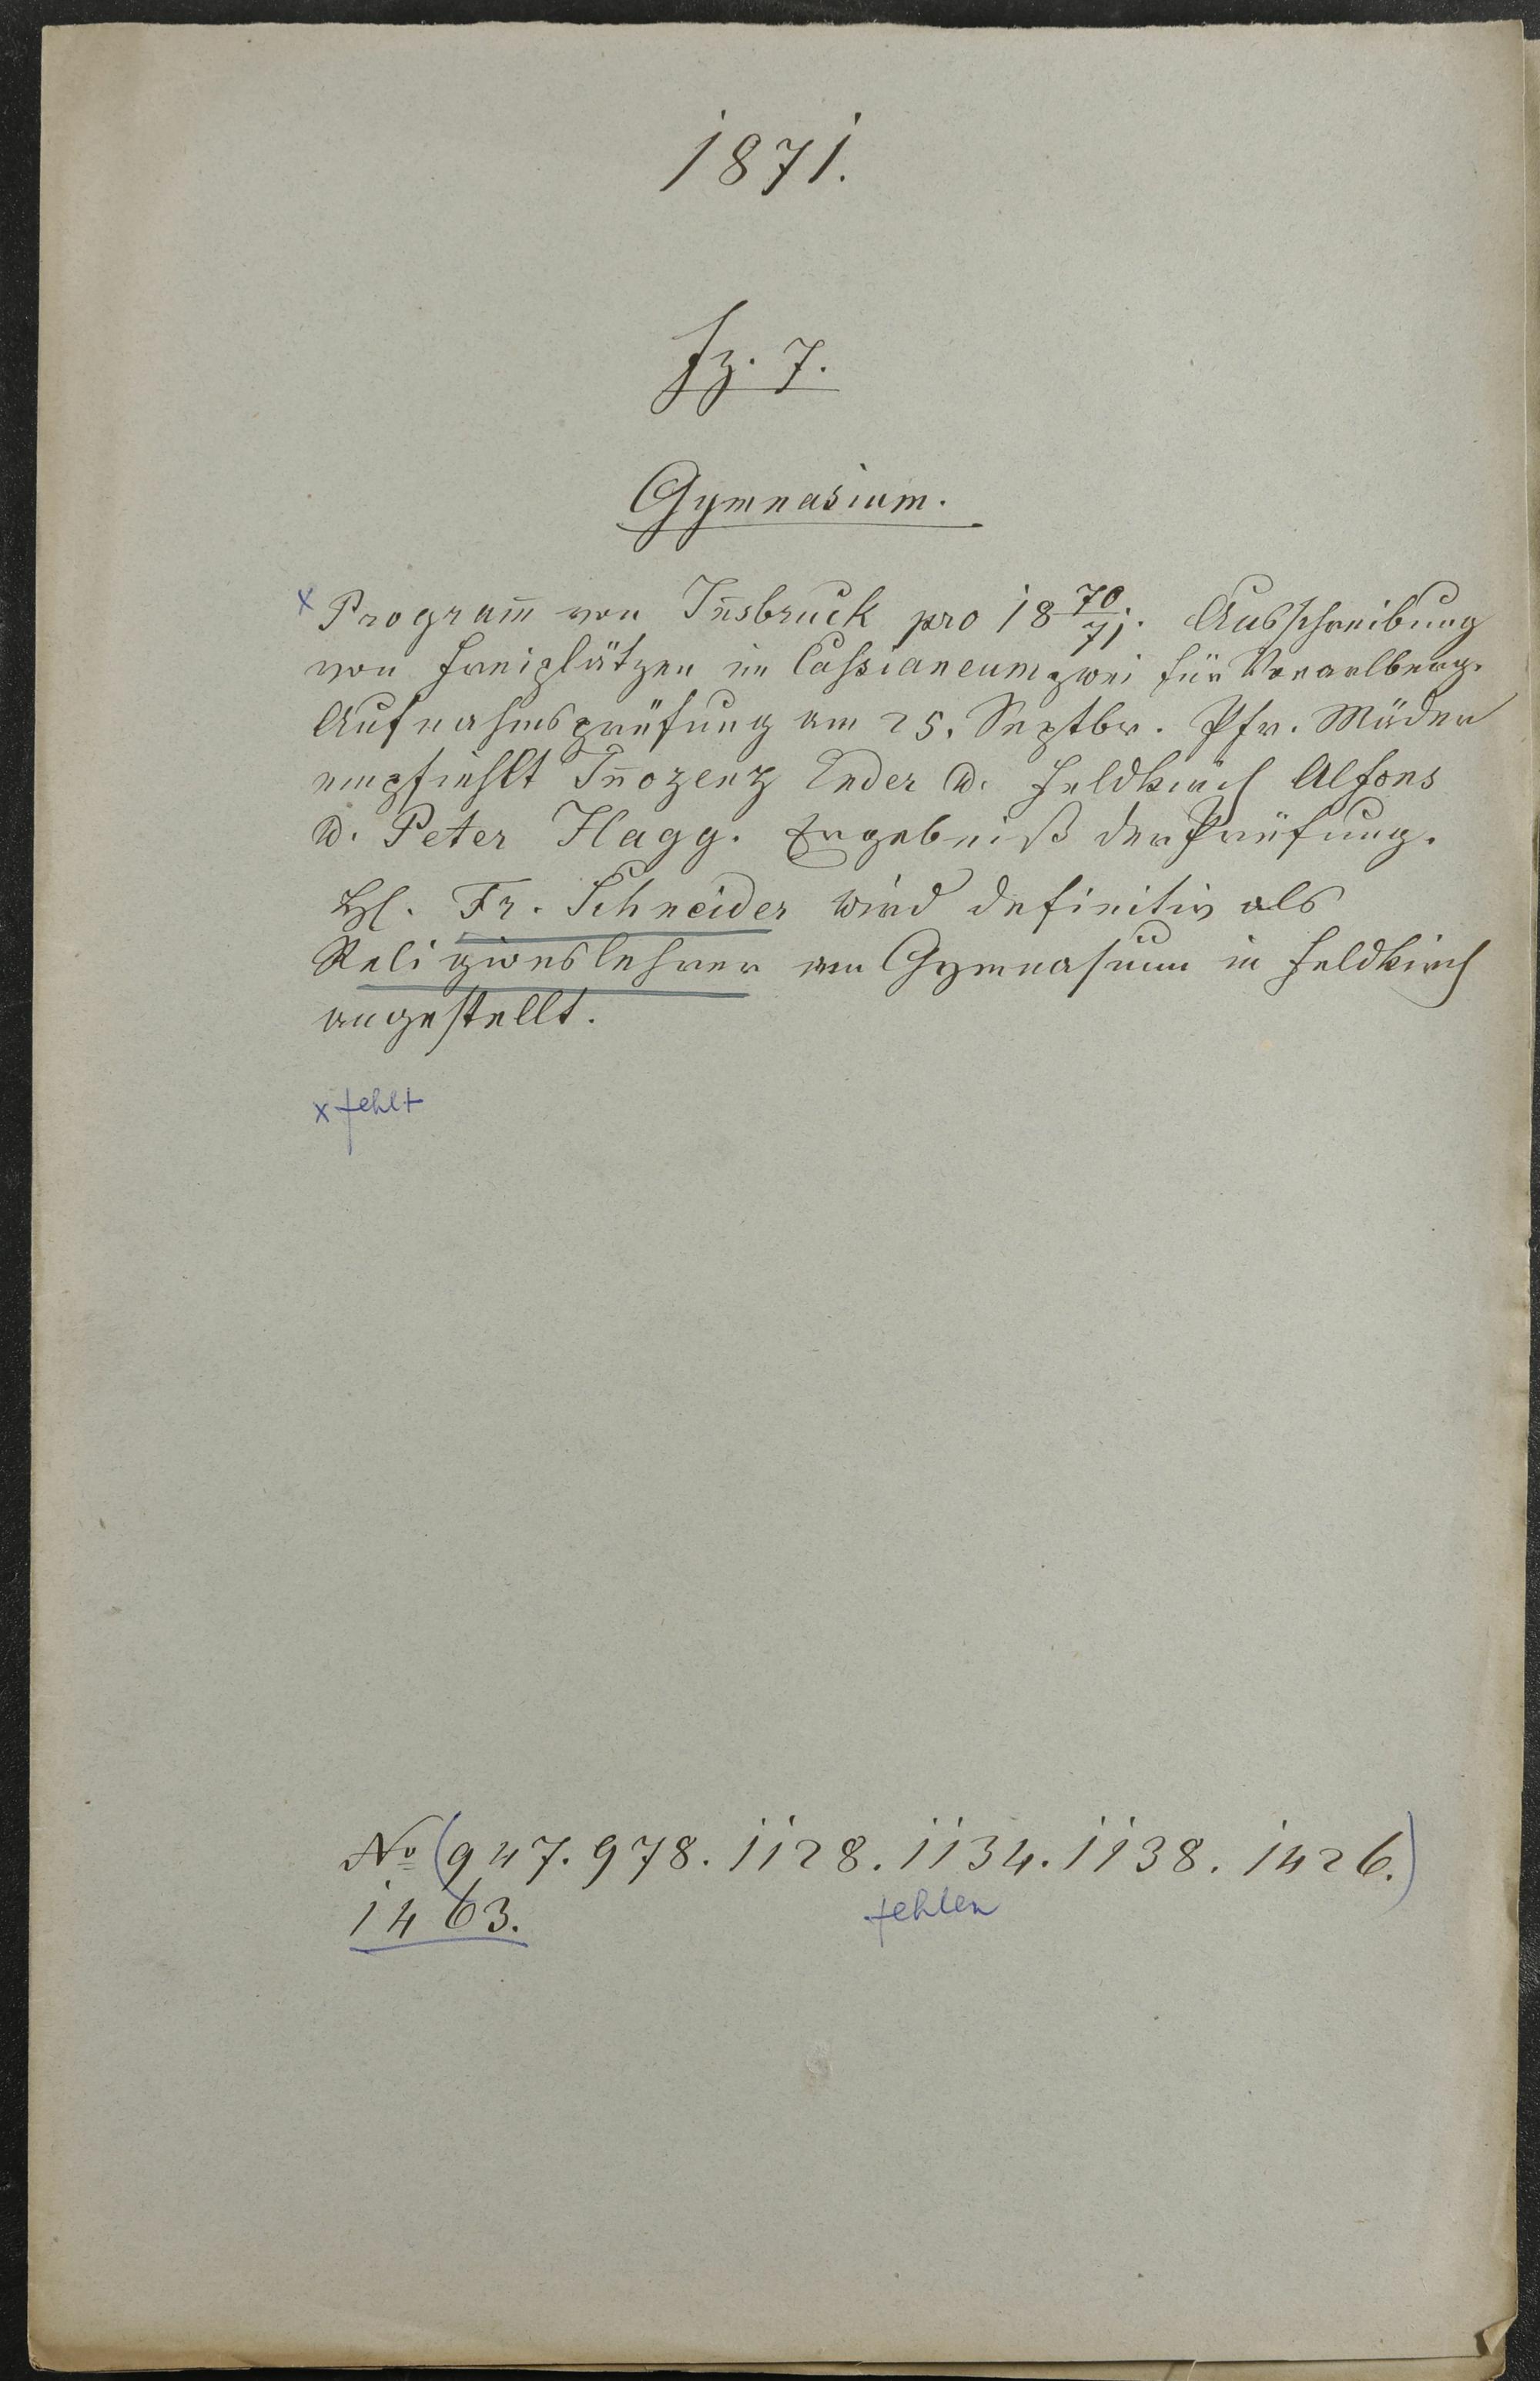 1871.
Fz. 7.
Gymnasium.
x Program̅ von In̅sbruck pro 18 70/71. Ausschreibung
von Freiplätzen im Cassianeum zwei für Vorarlberg.
Aufnahmsprüfung am 25. Septbr. Pfr. Mäder
empfiehlt In̅ozenz Ender u. Feldkirch Alfons
u. Peter Hagg. Ergebniß der Prüfung.
Fr. Schneider wird definitiv als
Religionslehrer am Gymnasium in Feldkirch
angestellt.
x fehlt
No (947. 978. 1128. 1134. 1138. 1426.)
1463.
fehlen